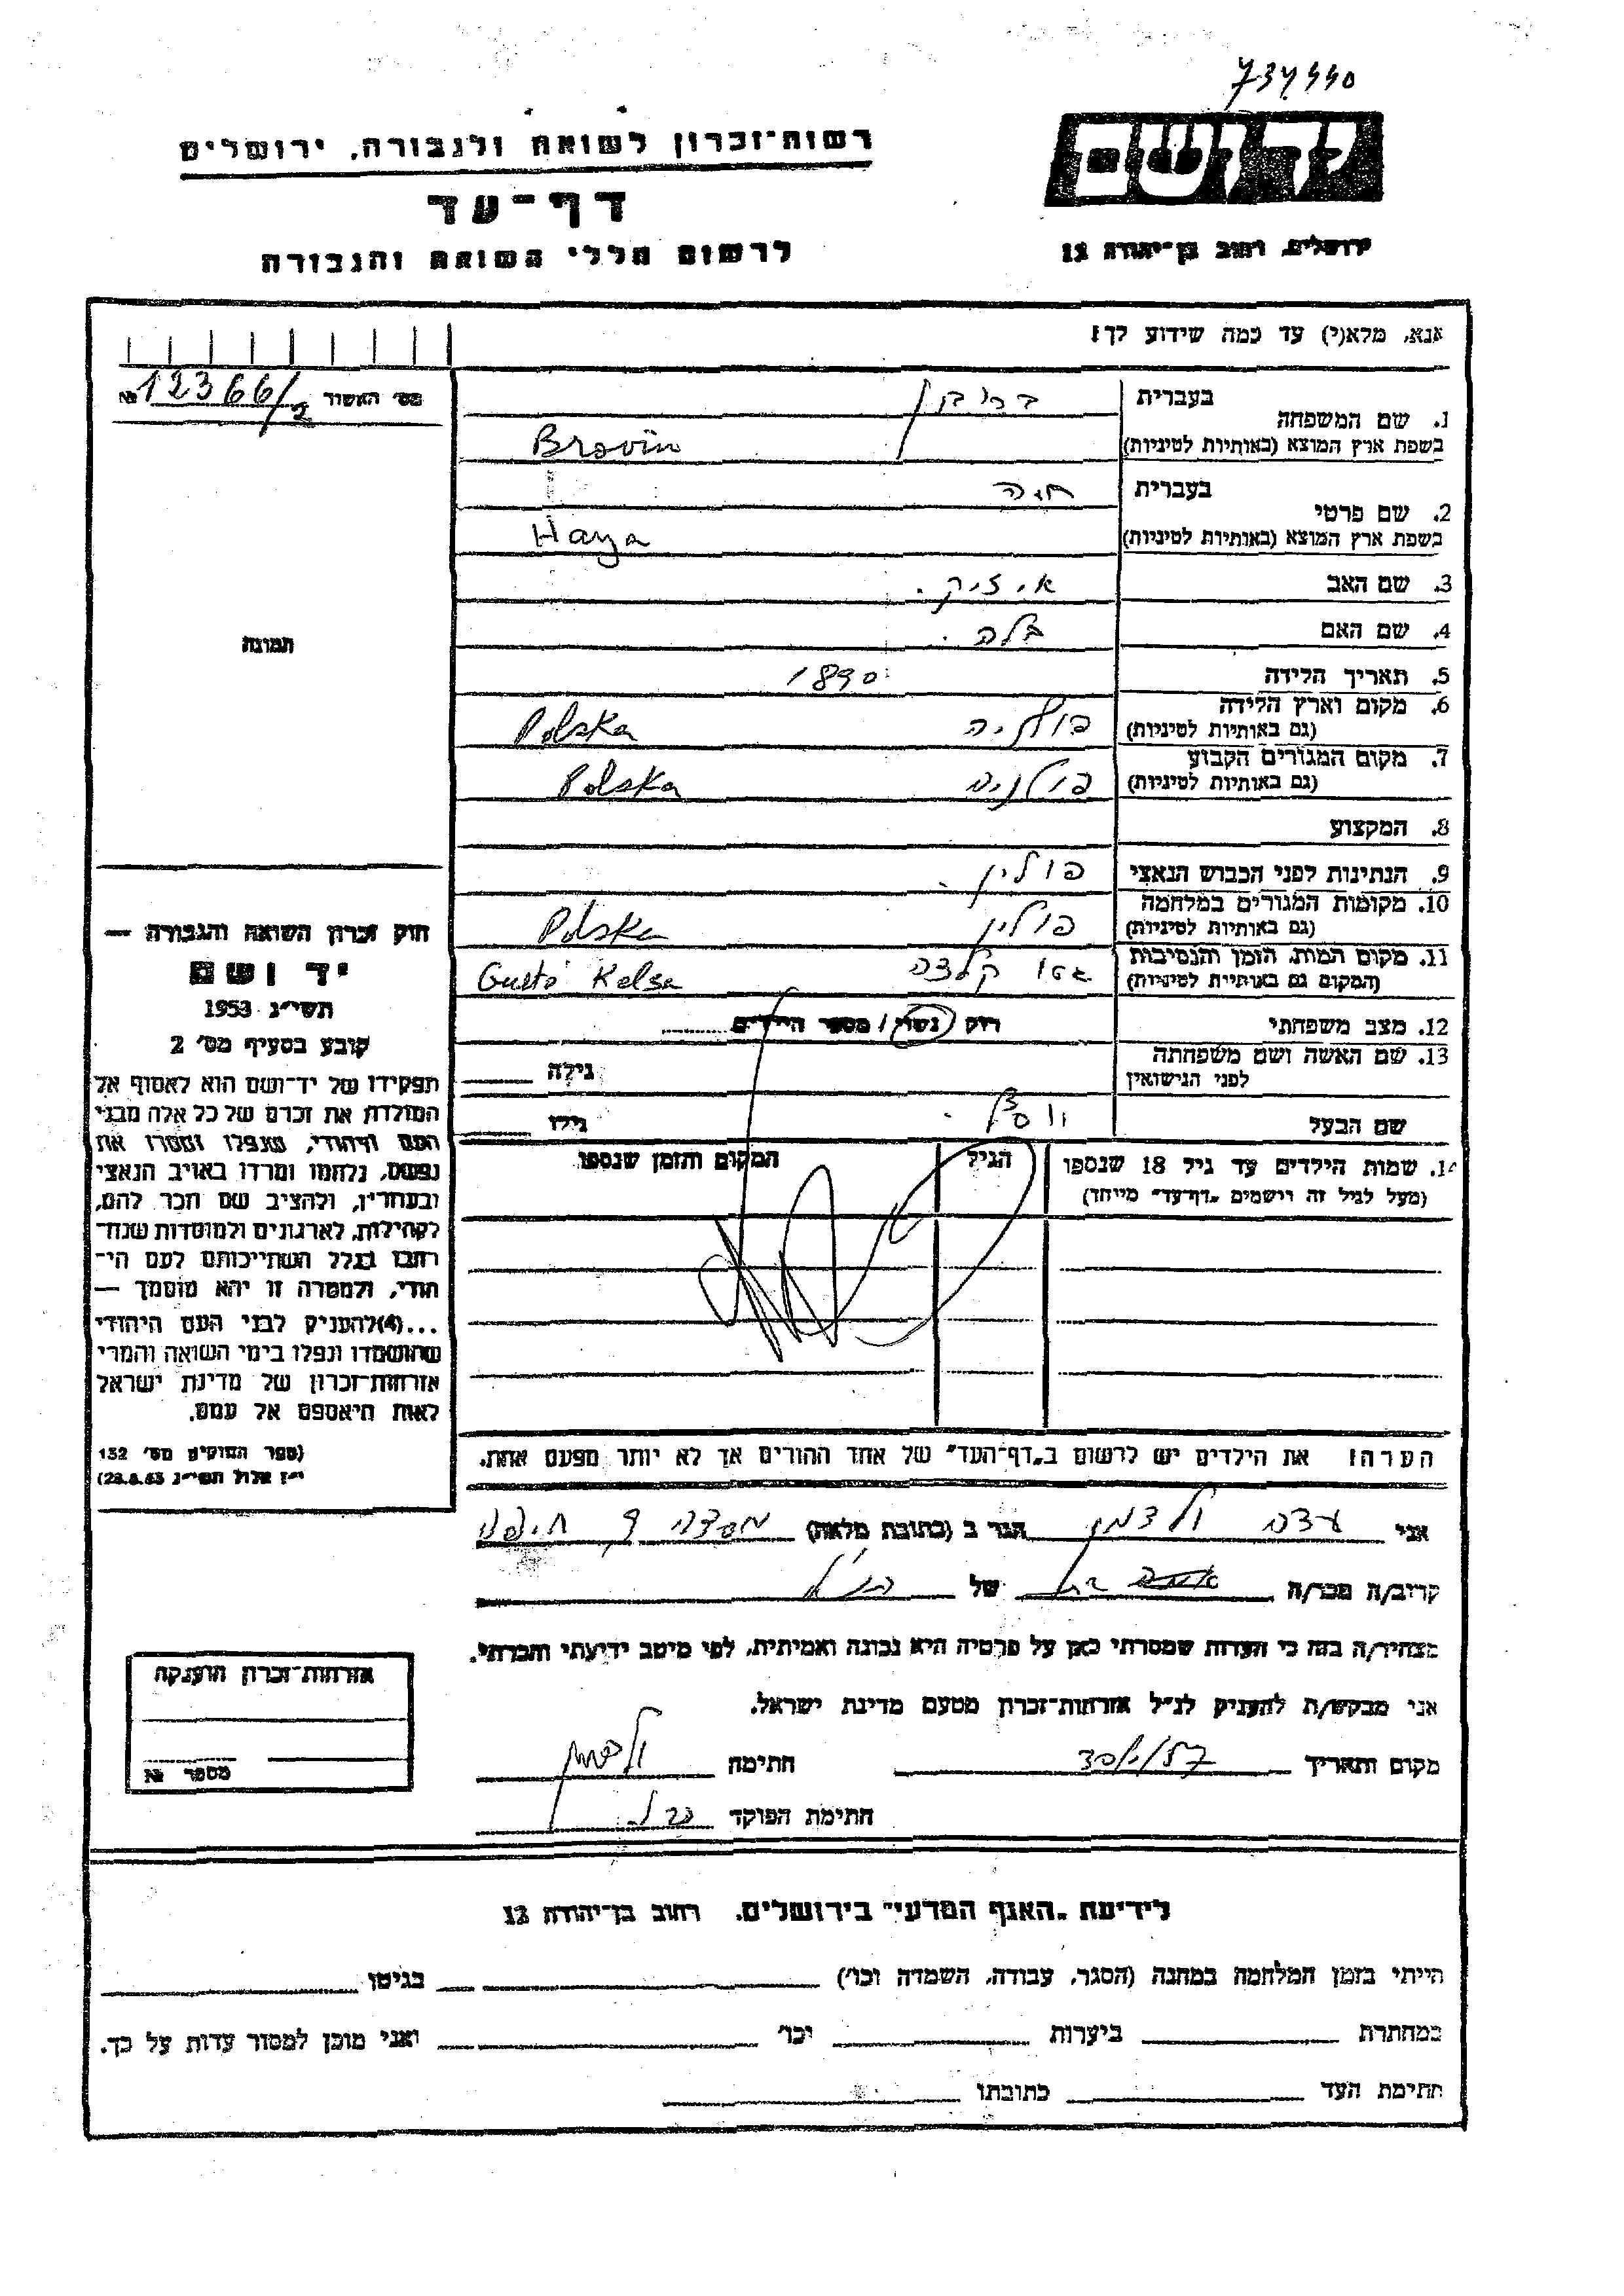 רשות־זכרון לשואה ולגבורה, ירושלים
יד ושם
דף־עד
לרשום חללי השואה והגבורה
ירושלים, רחוב בן־יהודה 12
אנא, מלא(י) עד כמה שידוע לך!
מס׳ האשור № 12366/2
1. שם המשפחה
בעברית
בשפת ארץ המוצא (באותיות לטיניות) Brovin
2. שם פרטי
בעברית חיה
בשפת ארץ המוצא (באותיות לטיניות) Haya
3. שם האב איציק.
4. שם האם בלה.
5. תאריך הלידה 1890
6. מקום וארץ הלידה
(גם באותיות לטיניות) Polska
7. מקום המגורים הקבוע
(גם באותיות לטיניות) Polska
8. המקצוע
9. הנתינות לפני הכבוש הנאצי פולין.
10. מקומות המגורים במלחמה
(גם באותיות לטיניות) פולין Polska
11. מקום המות, הזמן והנסיבות
(המקום גם באותיות לטיניות) גטו קלצה Gusto Kelsa
12. מצב משפחתי רוק / נשוי / מספר הילדים
13. שם האשה ושם משפחתה
לפני הנישואין גילה
שם הבעל גילו
14. שמות הילדים עד גיל 18 שנספו הגיל המקום והזמן שנספו
(מעל לגיל זה רישמים „דף־עד” מיוחד)
הערה: את הילדים יש לרשום ב„דף־העד” של אחד ההורים אך לא יותר מפעם אחת.
תמונה
חוק זכרון השואה והגבורה —
יד ושם
תשי״ג 1953
קובע בסעיף מס׳ 2
תפקידו של יד־ושם הוא לאסוף אל
המולדת את זכרם של כל אלה מבני
העם היהודי, שנפלו ומסרו את
נפשם, נלחמו ומרדו באויב הנאצי
ובעוזריו, ולהציב שם וזכר להם,
לקהילות, לארגונים ולמוסדות שנח־
רבו בגלל השתייכותם לעם הי־
הודי, ולמטרה זו יהא מוסמך —
...(4)להעניק לבני העם היהודי
שהושמדו ונפלו בימי השואה והמרי
אזרחות־זכרון של מדינת ישראל
לאות היאספם אל עמם.
(ספר החוקים מס׳ 132
י״ז אלול תשי״ג 28.8.53)
אני ולדמן הגר ב (כתובת מלאה) מסדה 9 חיפה
קרוב/ה מכר/ה של הנ״ל
מצהיר/ה בזה כי העדות שמסרתי כאן על פרטיה היא נכונה ואמיתית, לפי מיטב ידיעתי והכרתי.
אני מבקש/ת להעניק לנ״ל אזרחות־זכרון מטעם מדינת ישראל.
מקום ותאריך חתימה
חתימת הפוקד
אזרחות־זכרון הוענקה
מספר №
לידיעת „האגף המדעי” בירושלים, רחוב בן־יהודה 12
הייתי בזמן המלחמה במחנה (הסגר, עבודה, השמדה וכו׳) בגיטו
במחתרת ביערות וכו׳ ואני מוכן למסור עדות על כך.
חתימת העד כתובתו